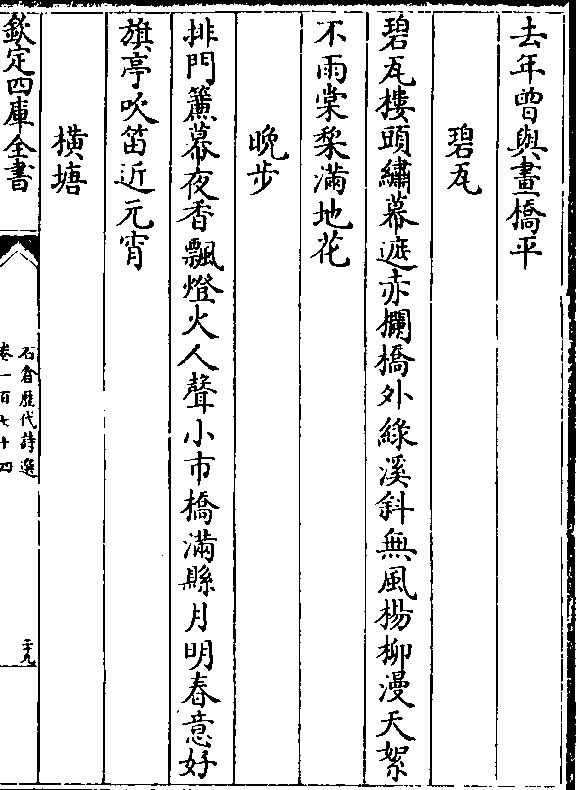 去年曽與畫橋平
碧瓦
碧瓦樓頭繡幕遮赤欄橋外綠溪斜無風楊柳漫天絮
不雨棠棃滿地花
晩步
排門簾幕夜香飄燈火人聲小市橋滿縣月明春意好
旗亭吹笛近元宵
橫塘
欽定四庫全書
石倉歷代詩選
卷一百七十四
二十九